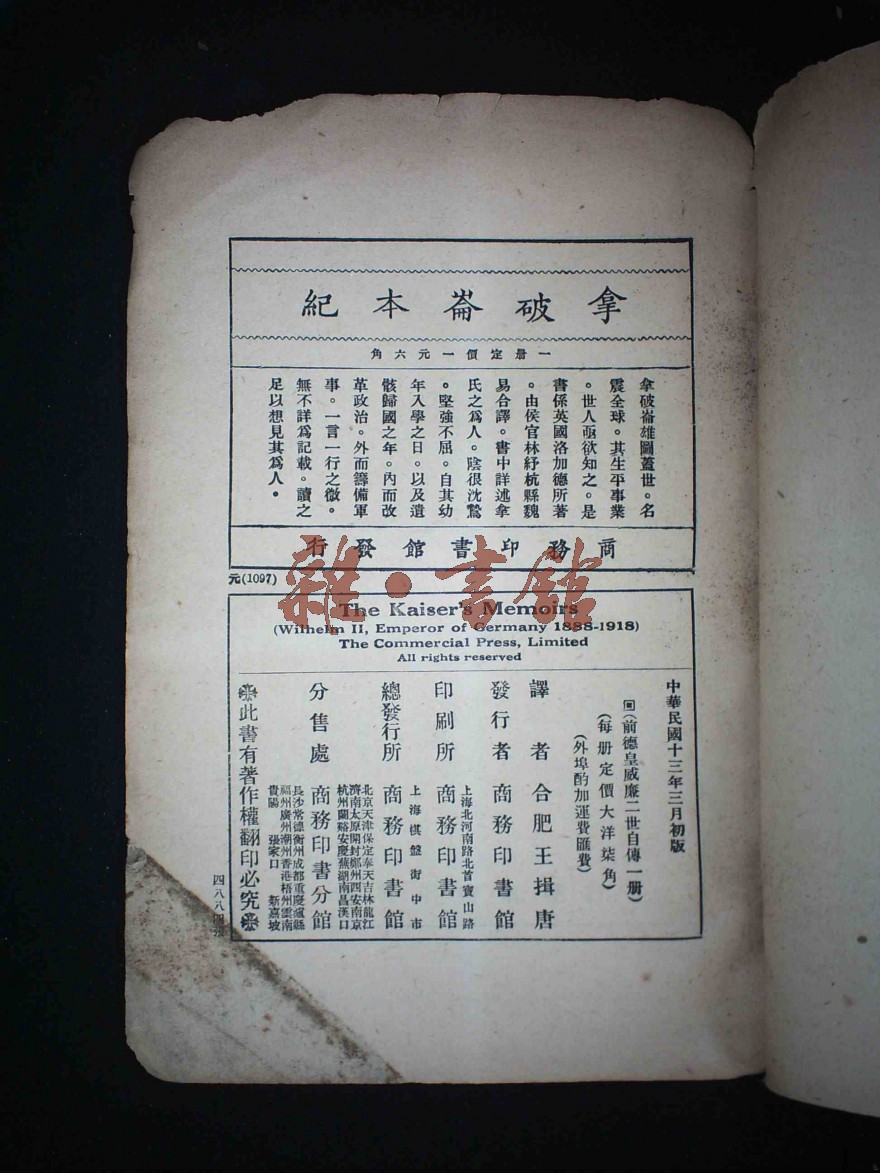 拿破崙本紀
一册定價一元六角
拿破崙雄圖蓋世。名
震全球。其生平事業
。世人亟欲知之。是
書係英國洛加德所著
。由侯官林紓杭縣魏
易合譯。書中詳述拿
氏之爲人。陰很沈鷙
。堅強不屈。自其幼
年入學之日。以及遺
骸歸國之年。內而改
革政治。外而籌備軍
事。一言一行之微。
無不詳爲記載。讀之
足以想見其爲人。
商務印書館發行
元(1097)
雜·書館
The Kaiser's Memoirs
(Wilhelm II, Emperor of Germany 1888-1918)
The Commercial Press, Limited
All rights reserved
中華民國十三年三月初版
回(前德皇威廉二世自傳一册)
(每册定價大洋柒角)
(外埠酌加運費匯費)
譯者 合肥王揖唐
發行者 商務印書館
上海北河南路北首寶山路
印刷所 商務印書館
上海棋盤街中市
總發行所 商務印書館
北京天津保定奉天吉林龍江
濟南太原開封鄭州西安南京
杭州蘭谿安慶蕪湖南昌漢口
分售處 商務印書分館
長沙常德衡州成都重慶瀘縣
福州廣州潮州香港梧州雲南
貴陽 張家口 新嘉坡
此書有著作權翻印必究
四八八